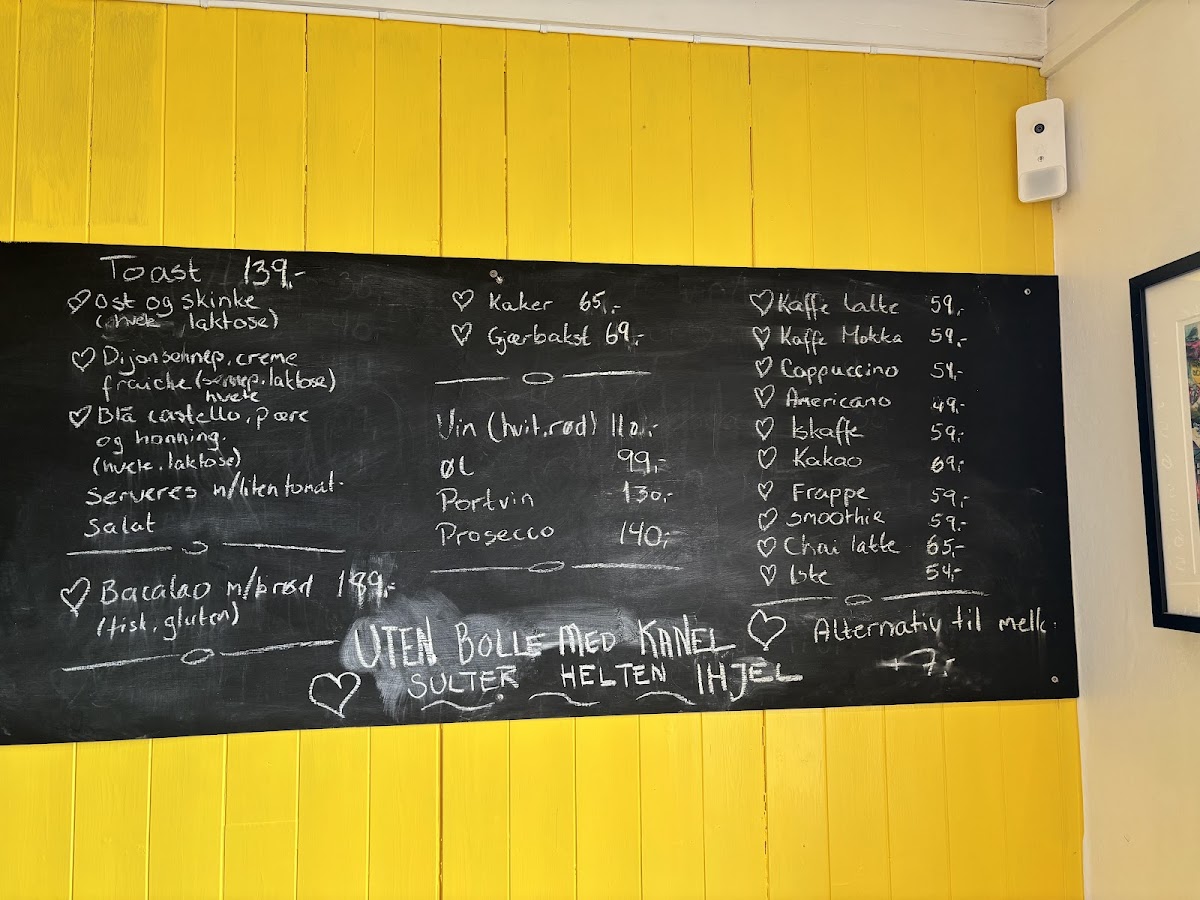 Toast 139,-
Ost og skinke
(hvete, laktose)
Dijonsennep, creme
fraiche (sennep, laktose)
hvete
Blå castello, pære
og honning.
(hvete, laktose)
Serveres m/liten tomat-
Salat
Bacalao m/brød 189,-
(fisk, gluten)
Kaker 65,-
Gjærbakst 69,-
Vin (hvit, rød) 110,-
Øl 99,-
Portvin 130,-
Prosecco 140,-
Kaffe latte 59,-
Kaffe Mokka 59,-
Cappuccino 54,-
Americano 49,-
Iskaffe 59,-
Kakao 69,-
Frappe 59,-
Smoothie 59,-
Chai latte 65,-
Iste 54,-
Alternativ til melk.
+7,-
UTEN BOLLE MED KANEL
SULTER HELTEN IHJEL